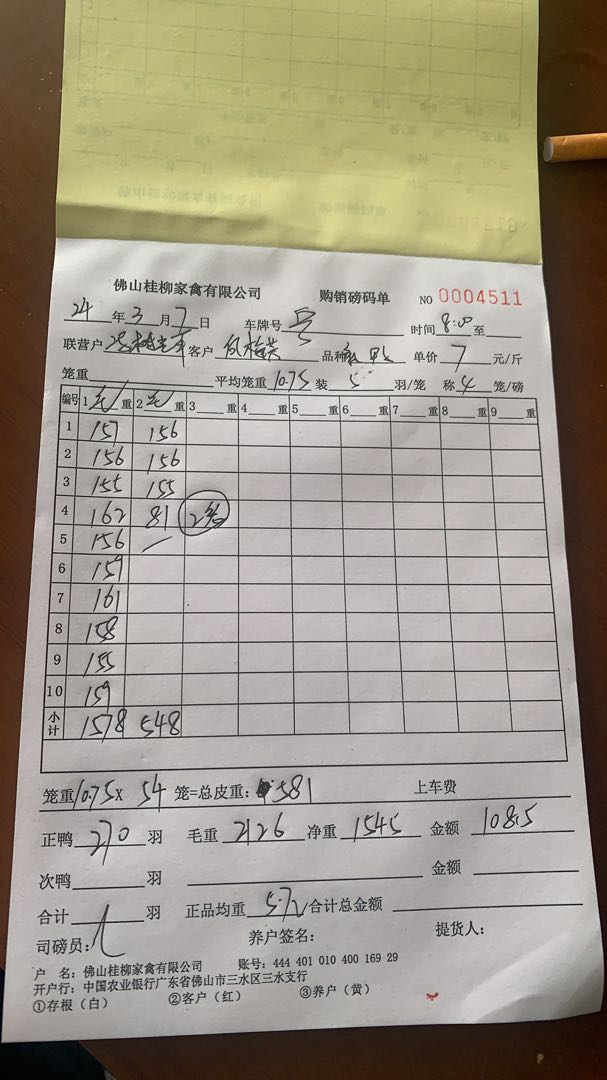 佛山桂柳家禽有限公司 购销磅码单 NO 0004511
24 年 3 月 7 日 车牌号 时间 8:00 至
联营户 客户 品种 单价 7 元/斤
笼重 平均笼重 10.75 装 5 羽/笼 称 4 笼/磅
编号 1 毛 重 2 毛 重 3 重 4 重 5 重 6 重 7 重 8 重 9 重
1 157 156
2 156 156
3 155 155
4 162 81 2笼
5 156
6 159
7 161
8 158
9 155
10 159
小计 1578 548
笼重 10.75 X 54 笼=总皮重: 581 上车费
正鸭 270 羽 毛重 2126 净重 1545 金额 10815
次鸭 羽 金额
合计 羽 正品均重 5.72 合计总金额
司磅员: 养户签名: 提货人:
户 名: 佛山桂柳家禽有限公司 账号: 444 401 010 400 169 29
开户行: 中国农业银行广东省佛山市三水区三水支行
①存根（白） ②客户（红） ③养户（黄）